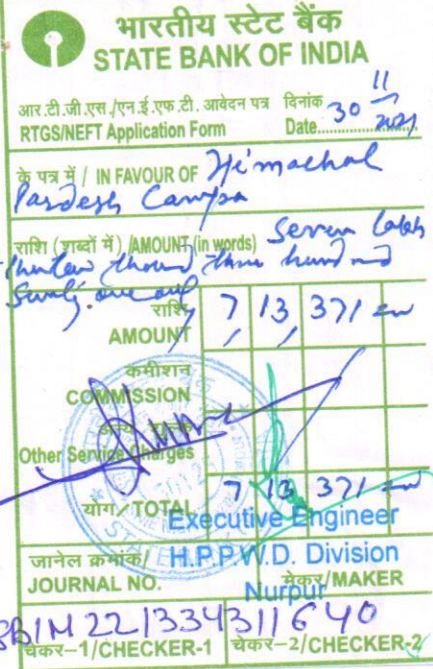 भारतीय स्टेट बैंक
STATE BANK OF INDIA
आर.टी.जी.एस./एन.ई.एफ.टी. आवेदन पत्र दिनांक 30 11
RTGS/NEFT Application Form Date............ 2021
के पत्र में / IN FAVOUR OF Himachal
Pardesh Campa
राशि (शब्दों में) /AMOUNT (in words) Seven Lakh
three hundred
one only
राशि 7, 13, 371
AMOUNT
कमीशन
COMMISSION
अन्य
Other Service Charges
योग/TOTAL 7 13 371
Executive Engineer
H.P.P.W.D. Division
Nurpur
जानेल क्रमांक/
JOURNAL NO. मेकर/MAKER
SBIN221334311640
चेकर–1/CHECKER-1 चेकर–2/CHECKER-2